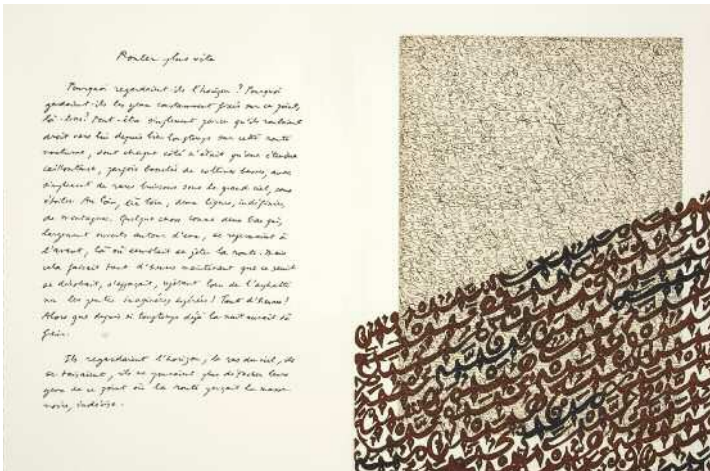 Rouler plus vite
Pourquoi regardaient-ils l'horizon ? Pourquoi
gardaient-ils les yeux constamment fixés sur ce point,
là-bas ? Peut-être simplement parce qu'ils roulaient
droit vers lui depuis bien longtemps sur cette route
nocturne, dont chaque côté n'était qu'une étendue
caillouteuse, parfois bouclée de collines basses, avec
simplement de rares buissons sous le grand ciel, sans
étoiles. Au loin, au loin, deux lignes, indéfinies,
de montagnes. Quelque chose comme deux bras qui,
largement ouverts autour d'eux, se rejoignaient à
l'avant, là où semblait se jeter la route. Mais
cela faisait tant d'heures maintenant que ce seuil
se dérobait, s'effaçait, rejetant loin de l'asphalte
les gestes imaginaires espérés ! Tant d'heures !
Alors que depuis si longtemps déjà la nuit aurait dû
finir.
Ils regardaient l'horizon, le ras du ciel, ils
se taisaient, ils ne pouvaient plus détacher leurs
yeux de ce point où la route perçait la masse
noire, indivise.